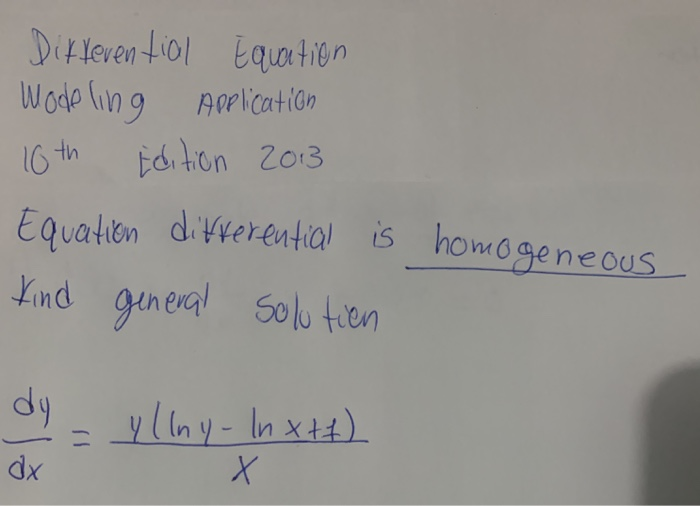 Differential Equation
Modeling Application
10th Edition 2013
Equation differential is homogeneous
Find general solution
dy/dx = y(ln y - ln x+1)/x